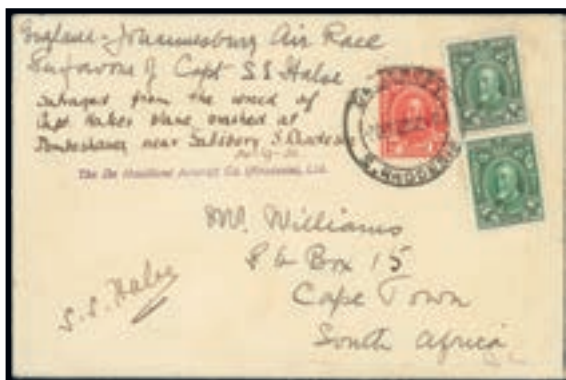 England - Johannesburg Air Race
In favour of Capt S.S. Halse
salvaged from the wreck of
Capt Halse's plane crashed at
near Salisbury S. Rhodesia
The De Havilland Aircraft Co. (Rhodesia), Ltd.
S. RHODESIA
Mr. Williams
P.O. Box 15
Cape Town
South Africa
S.S. Halse